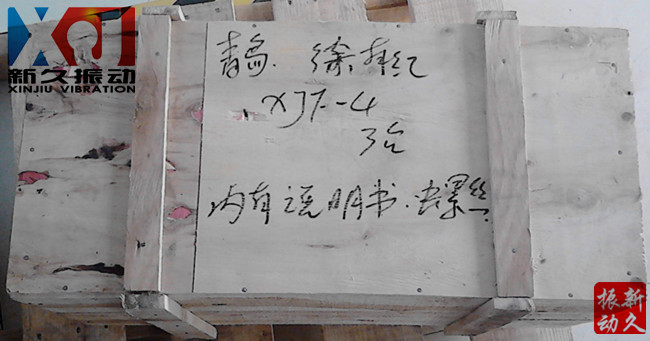 XJ
新久振动
XINJIU VIBRATION
青岛. 徐
XJF-4
3台
内有说明书. 螺丝
新久
振动